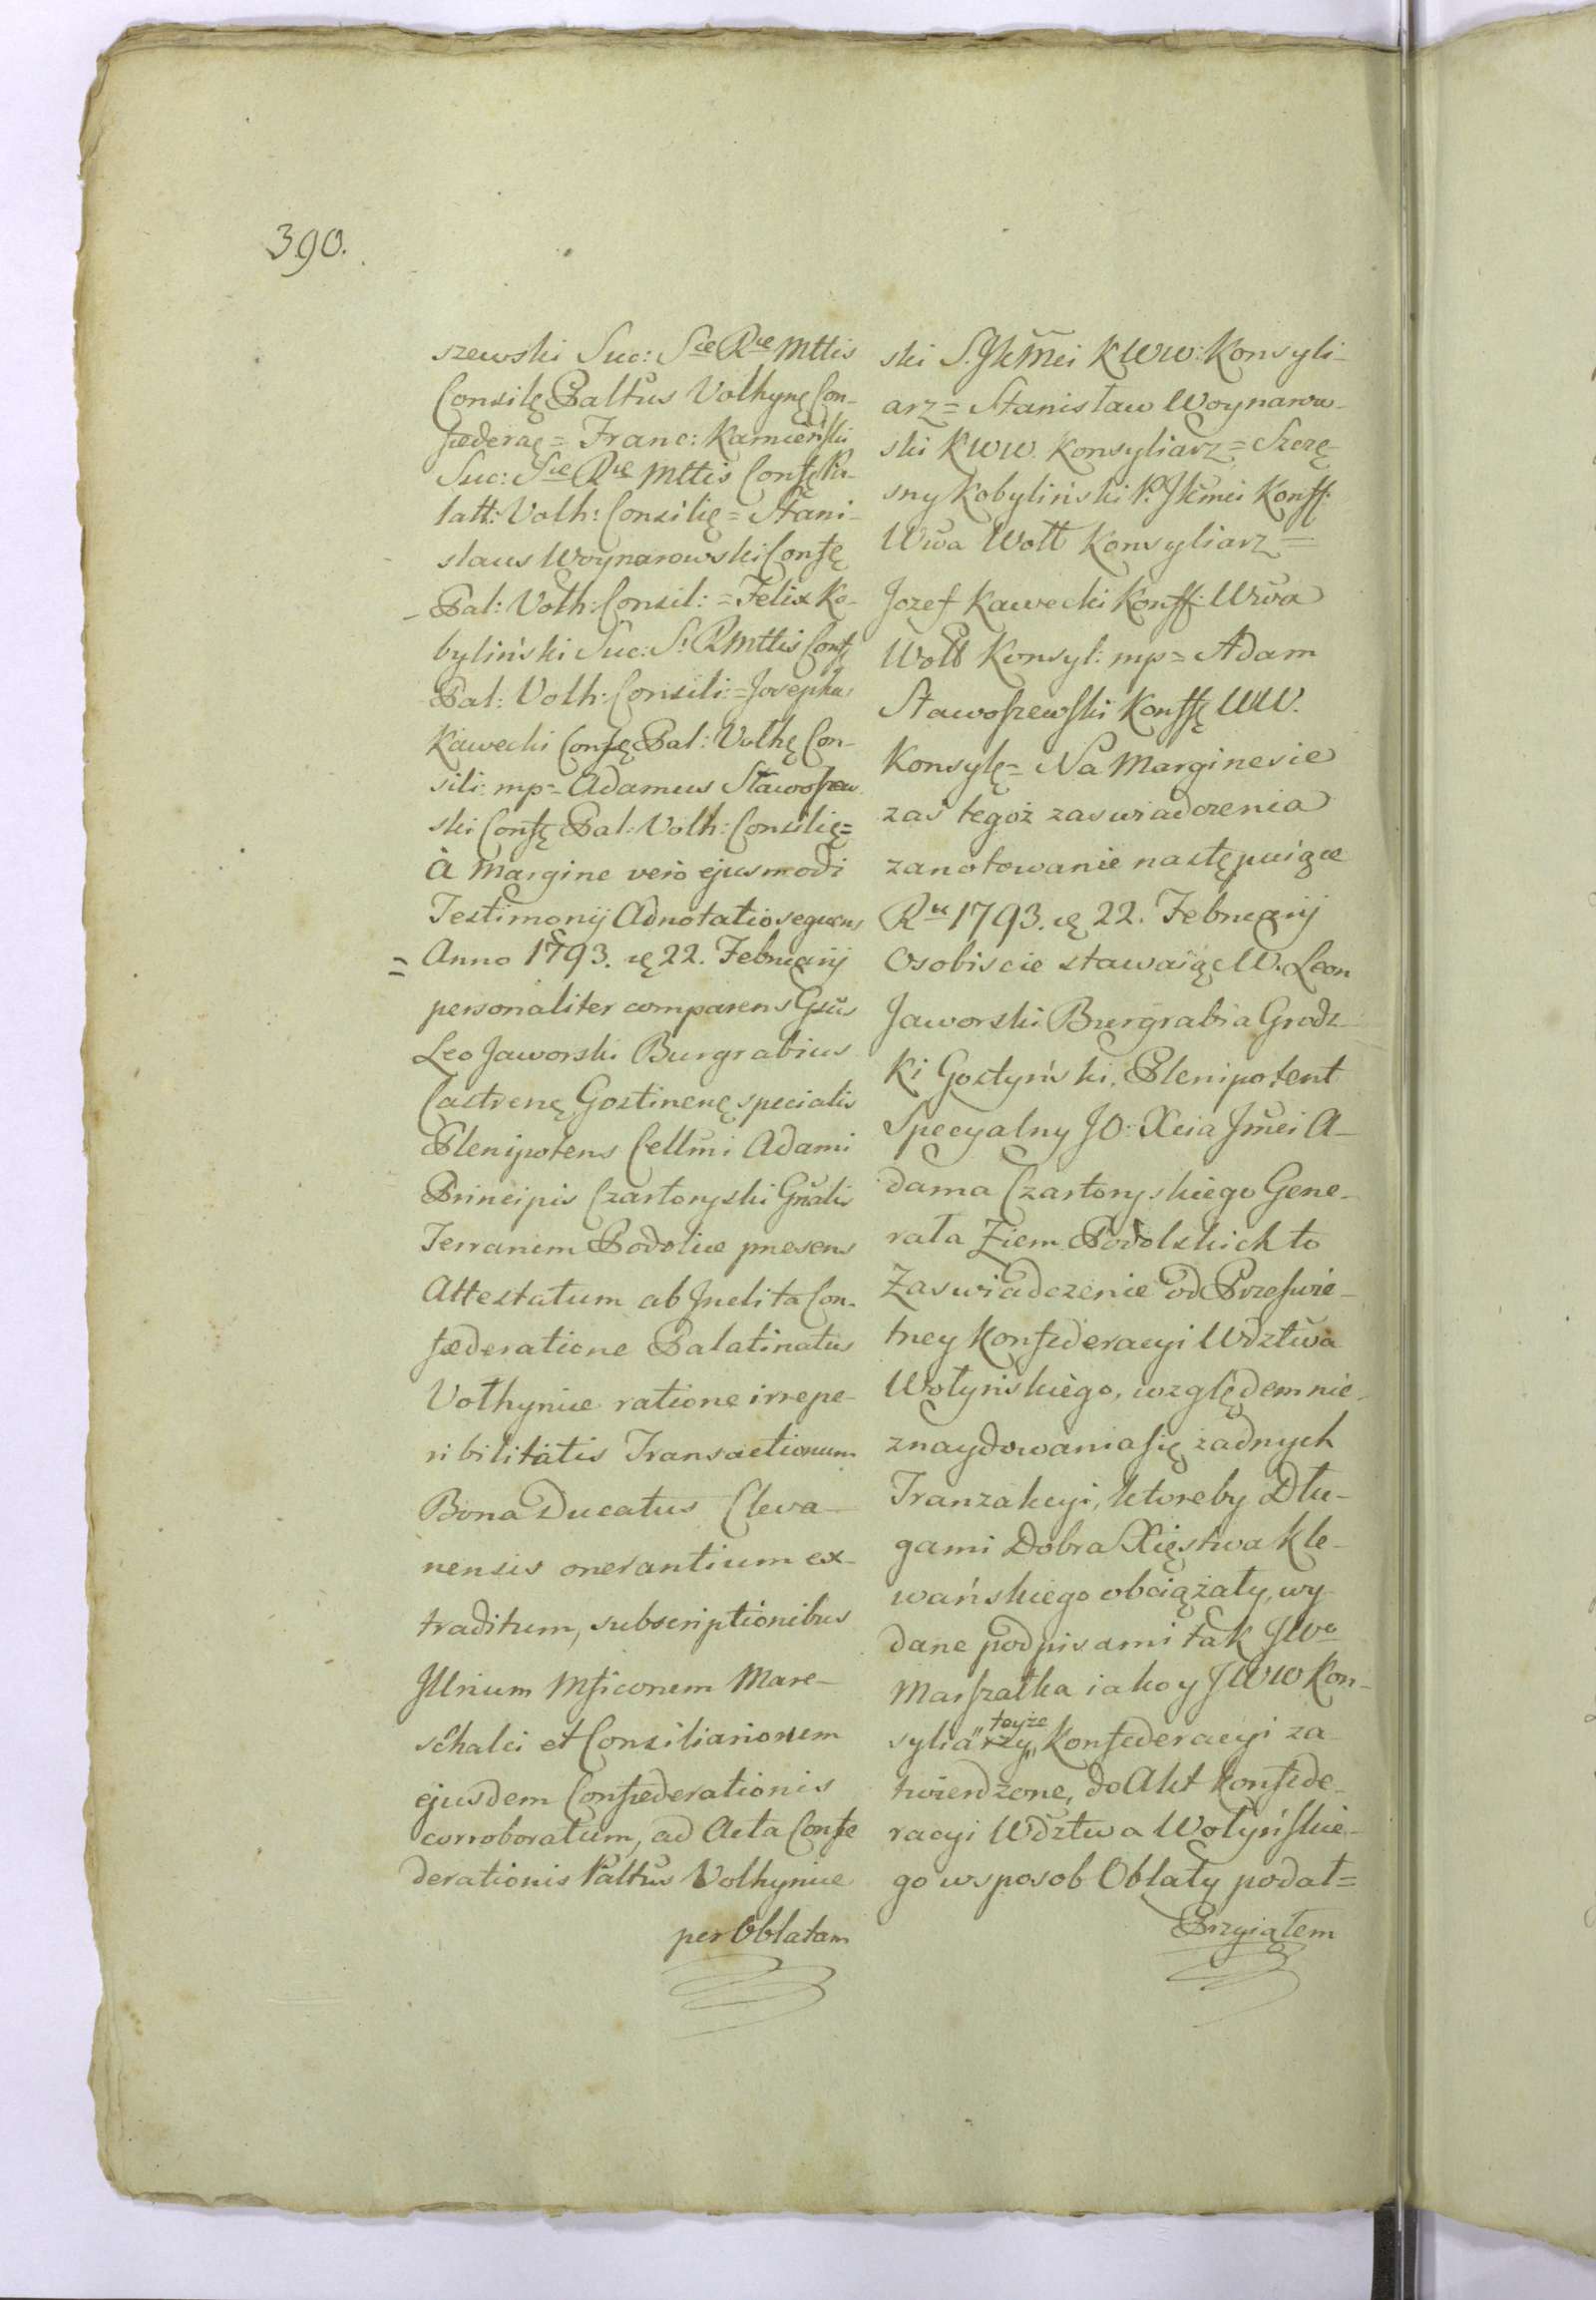 390.
szewski Suc: Sæ Ræ Mttis
Consilę Paltus Volhynę Con-
fæderaę = Franc: Kamieński
Suc: Sæ Ræ Mttis Confę Pa-
latt: Volh: Consilię = Stani-
slaus Woynarowski Confę
Pal: Volh: Consil: = Felix Ko-
byliński Suc: S: R Mttis Confę
Pal: Volh: Consili: = Josephus
Kawecki Confę Pal: Volhę Con-
sili: mp = Adamus Stawoszew-
ski Confę Pal: Volh: Consilię =
à Margine verò ejusmodi
Testimonij Adnotatio sequens
= Anno 1793. ię 22. Februarij
personaliter comparens Gsus
Leo Jaworski Burgrabius
Castrenę Gostinenę specialis
Plenipotens Cellmi Adami
Principis Czartoryski Gnalis
Terrarum Podoliæ præsens
Attestatum ab Inclita Con-
fæderatione Palatinatus
Volhyniæ ratione irrepe-
ribilitatis Transactionum
Bona Ducatus Cleva-
nensis onerantium ex-
traditum, subscriptionibus
Illrium Mficorum Mare-
schalci et Consiliariorum
ejusdem Confæderationis
corroboratum, ad Acta Confe
derationis Paltus Volhyniæ
per Oblatam
ski S. Jkmci KWW: Konsyli-
arz = Stanisław Woynarow-
ski KWW. Konsyliarz = Szczę-
sny Kobyliński P. Jkmci Konff:
Wwa Woł Konsyliarz =
Jozef Kawecki Konff: Wwa
Woł Konsyl: mp = Adam
Stawoszewski Konffę WW.
Konsylę = Na Marginesie
zaś tegoż zaswiadczenia
zanotowanie następuiące
Ru 1793. ię 22. Februarij
Osobiscie stawaiąc W. Leon
Jaworski Burgrabia Grodz-
ki Gostyński, Plenipotent
Specyalny JO: Xcia Jmci A-
dama Czartoryskiego Gene-
rała Ziem Podolskich to
Zaswiadczenie od Przeswie-
tney Konfederacyi Wdztwa
Wołyńskiego, względem nie-
znaydowania się żadnych
Tranzakcyi, ktoreby Dłu-
gami Dobra Xięstwa Kle-
wańskiego obciążały, wy-
dane podpisami tak JWo
Marszałka iako y JWW Kon-
syliarzy teyże Konfederacyi za
twierdzone, do Akt Konfede-
racyi Wdztwa Wołyńskie-
go wsposob Oblaty podał =
Przyiąłem